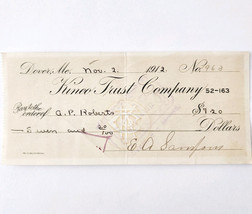 Dover, Me. Nov. 2 1912. No. 963
Kineo Trust Company 52-163
Pay to the order of A. P. Roberts $7.20
Seven and 20/100 Dollars
E A